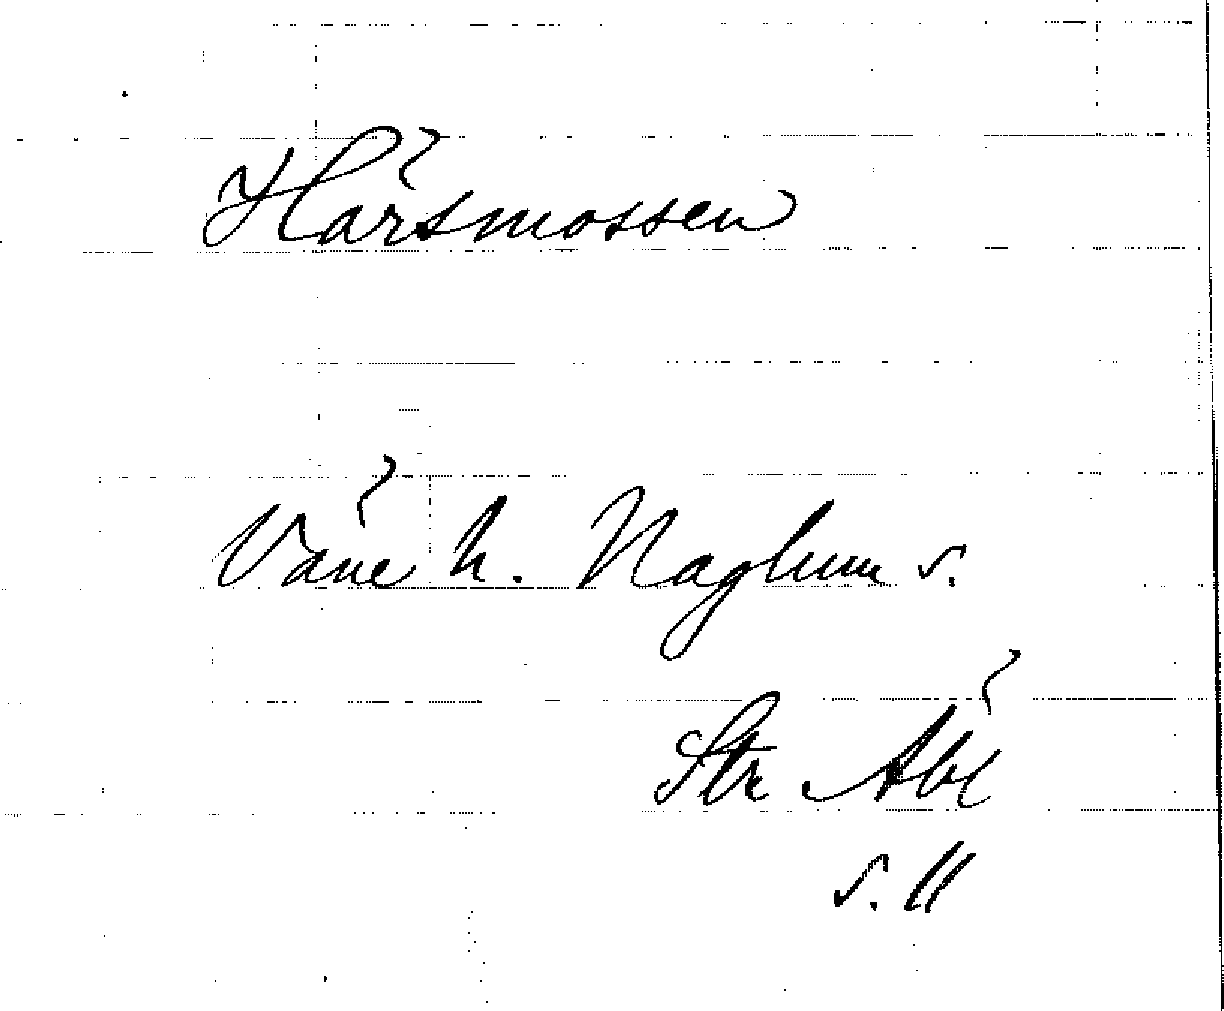 Hårsmossen
Väne h. Naglum s.
Str Åbl
s. 11